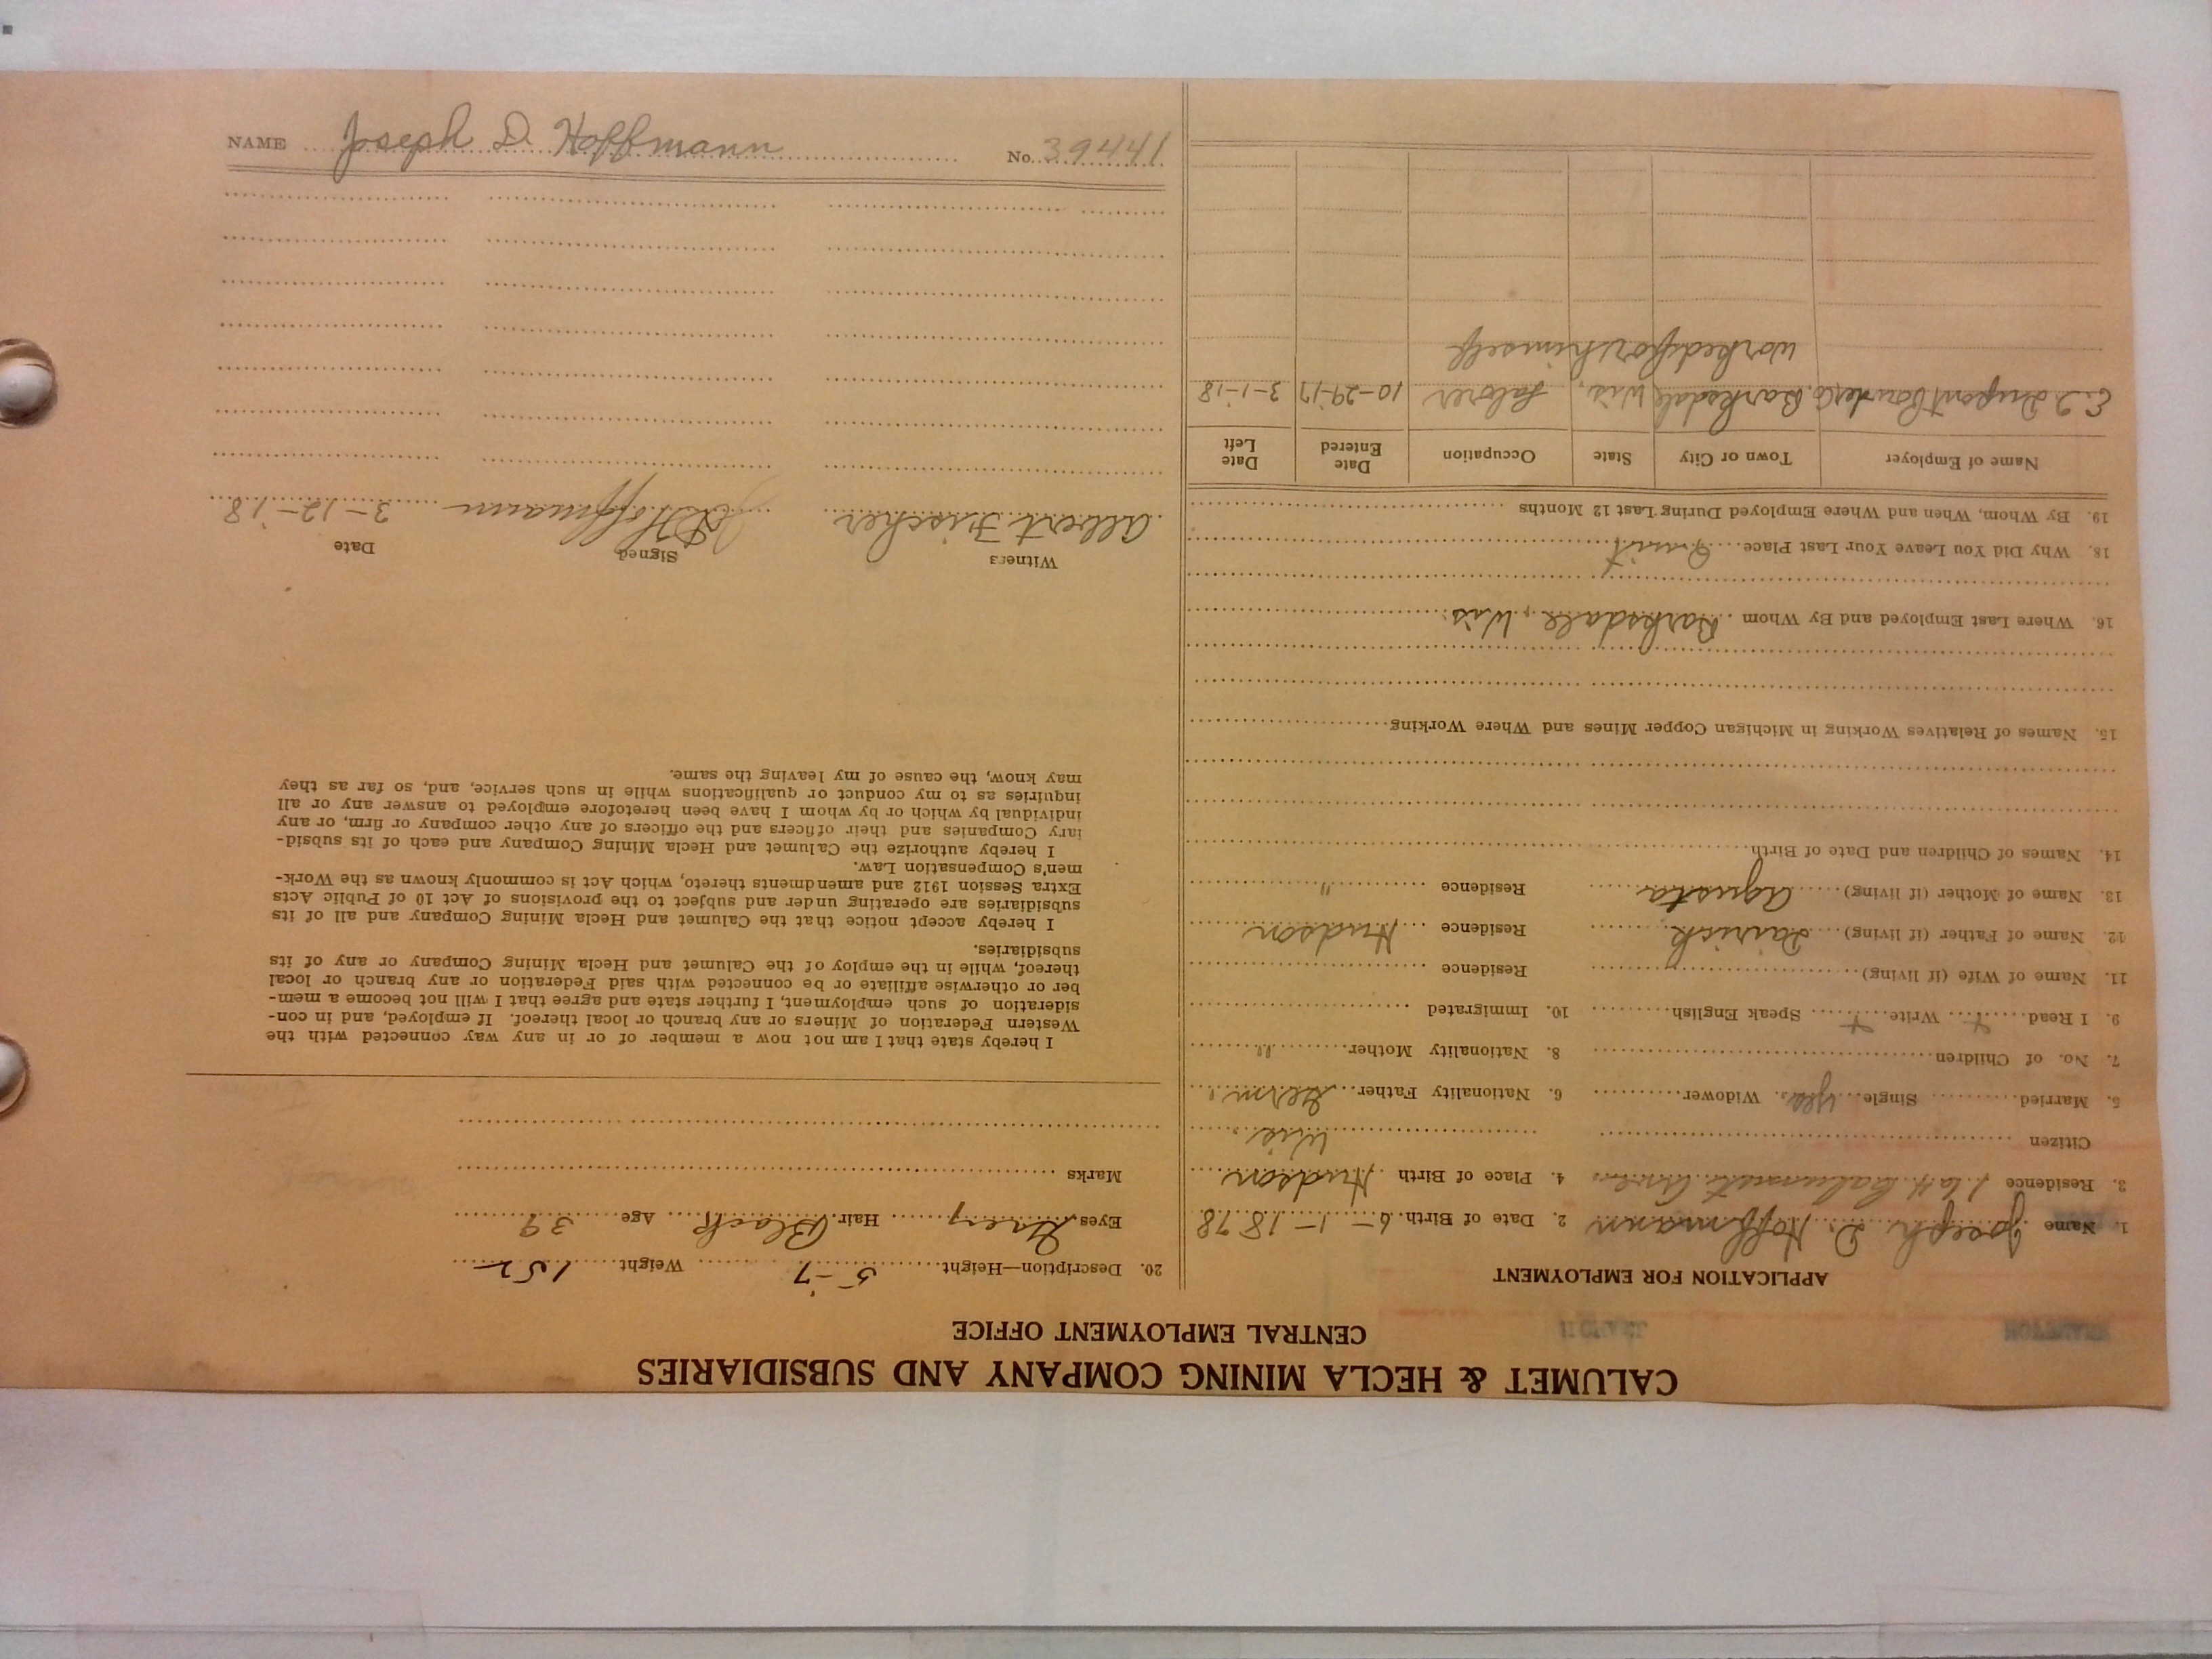 CALUMET & HECLA MINING COMPANY AND SUBSIDIARIES
CENTRAL EMPLOYMENT OFFICE
APPLICATION FOR EMPLOYMENT
1. Name Joseph D. Hoffmann 2. Date of Birth 6-1-1878
3. Residence 4. Place of Birth Hudson
Citizen Wis.
5. Married Single yes. Widower 6. Nationality Father Germ.
7. No. of Children 8. Nationality Mother "
9. I Read + Write + Speak English 10. Immigrated
11. Name of Wife (if living) Residence
12. Name of Father (if living) Residence Hudson
13. Name of Mother (if living) Agusta Residence "
14. Names of Children and Date of Birth
15. Names of Relatives Working in Michigan Copper Mines and Where Working
16. Where Last Employed and By Whom Barksdale, Wis.
18. Why Did You Leave Your Last Place Quit
19. By Whom, When and Where Employed During Last 12 Months
Name of Employer Town or City State Occupation Date Entered Date Left
E. I. Dupont Powder Co. Barksdale Wis. Laborer 10-29-'17 3-1-'18
Worked for himself
20. Description—Height 5-7 Weight 152
Eyes Grey Hair Black Age 39
Marks
I hereby state that I am not now a member of or in any way connected with the
Western Federation of Miners or any branch or local thereof. If employed, and in con-
sideration of such employment, I further state and agree that I will not become a mem-
ber or otherwise affiliate or be connected with said Federation or any branch or local
thereof, while in the employ of the Calumet and Hecla Mining Company or any of its
subsidiaries.
I hereby accept notice that the Calumet and Hecla Mining Company and all of its
subsidiaries are operating under and subject to the provisions of Act 10 of Public Acts
Extra Session 1912 and amendments thereto, which Act is commonly known as the Work-
men's Compensation Law.
I hereby authorize the Calumet and Hecla Mining Company and each of its subsid-
iary Companies and their officers and the officers of any other company or firm, or any
individual by which or by whom I have been heretofore employed to answer any or all
inquiries as to my conduct or qualifications while in such service, and, so far as they
may know, the cause of my leaving the same.
Witness Signed Date
Albert Fischer J D Hoffmann 3-12-'18
NAME Joseph D. Hoffmann No. 39441